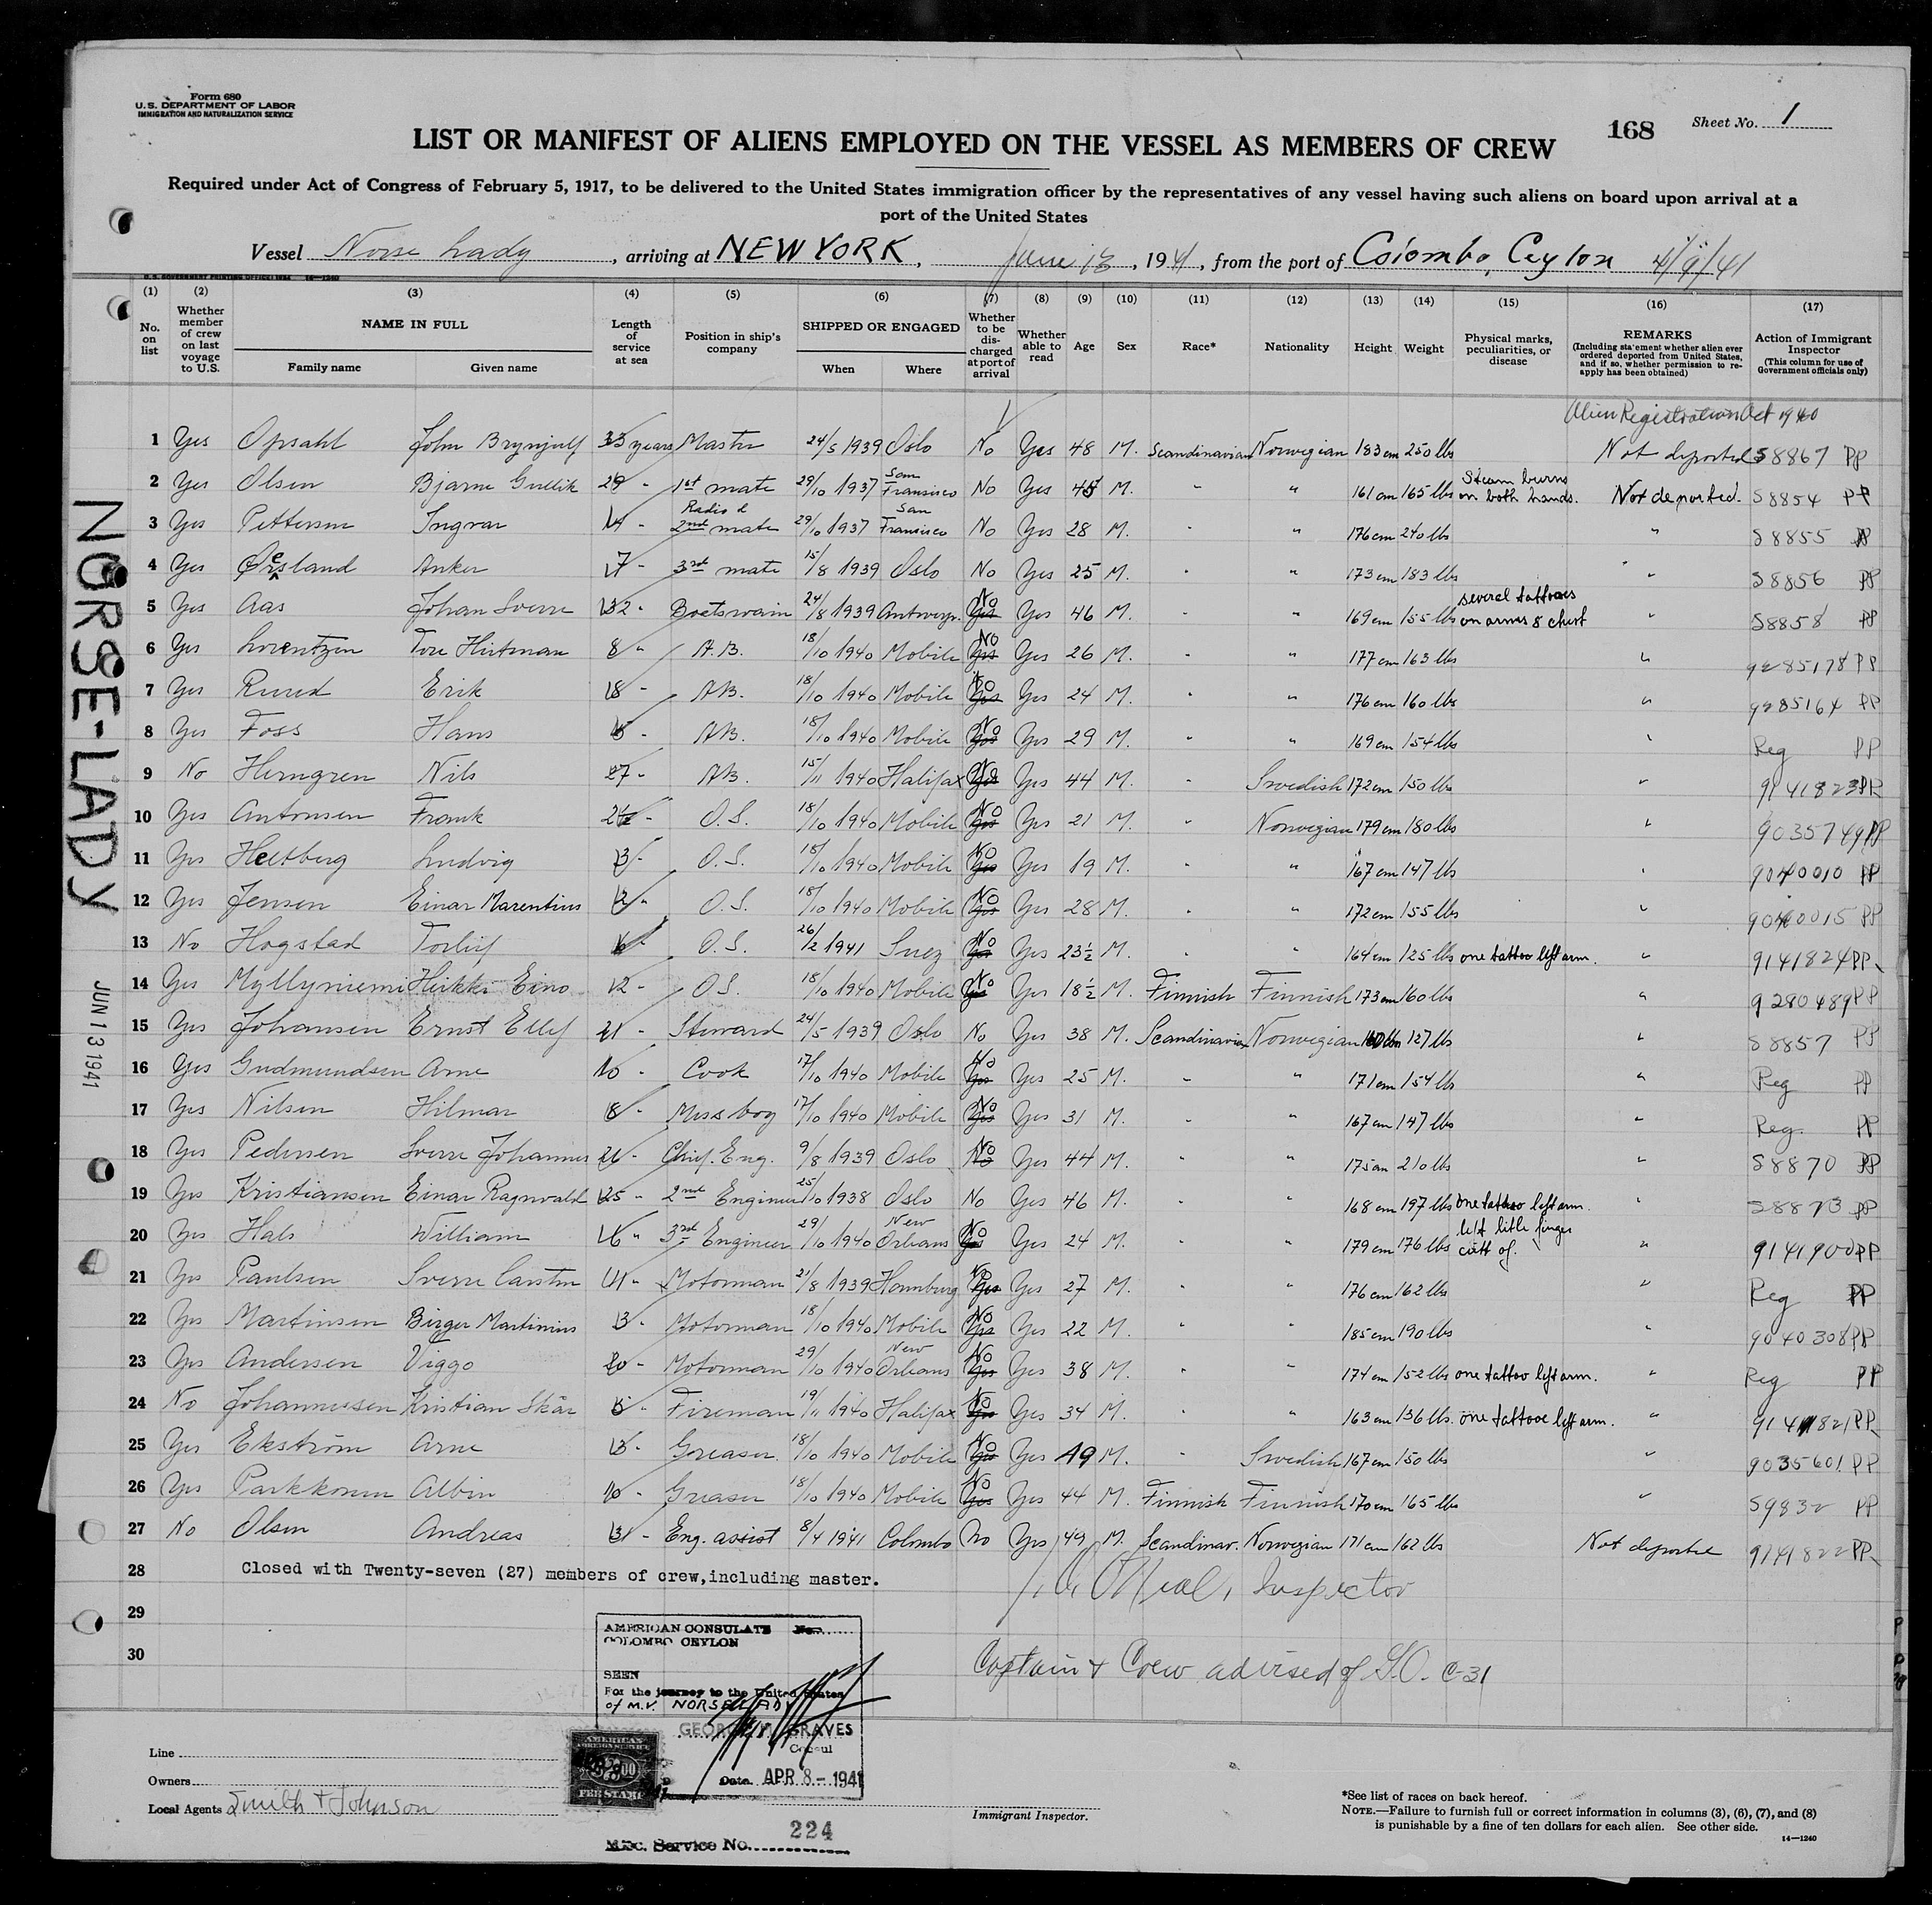 Form 680
U.S. DEPARTMENT OF LABOR
IMMIGRATION AND NATURALIZATION SERVICE
168
Sheet No. 1
LIST OR MANIFEST OF ALIENS EMPLOYED ON THE VESSEL AS MEMBERS OF CREW
Required under Act of Congress of February 5, 1917, to be delivered to the United States immigration officer by the representatives of any vessel having such aliens on board upon arrival at a
port of the United States
Vessel Norse Lady, arriving at NEW YORK, June 13, 1941, from the port of Colombo, Ceylon 4/9/41
(1) (2) (3) (4) (5) (6) (7) (8) (9) (10) (11) (12) (13) (14) (15) (16) (17)
No. on list
Whether member of crew on last voyage to U.S.
NAME IN FULL
Family name Given name
Length of service at sea
Position in ship's company
SHIPPED OR ENGAGED
When Where
Whether to be discharged at port of arrival
Whether able to read
Age
Sex
Race*
Nationality
Height
Weight
Physical marks, peculiarities, or disease
REMARKS
(Including statement whether alien ever ordered deported from United States, and if so, whether permission to reapply has been obtained)
Action of Immigrant Inspector
(This column for use of Government officials only)
Alien Registration Act 1940
1 Yes Opsahl John Brynjulf 33 years Master 24/5 1939 Oslo No Yes 48 M. Scandinavian Norwegian 183 cm 250 lbs Not deported S8867 PP
2 Yes Olsen Bjarne Gullik 29 - 1st mate 29/10 1937 San Fransisco No Yes 45 M. " " 161 cm 165 lbs Steam burns on both hands. Not deported. S8854 PP
3 Yes Pettersen Ingvar 14 - Radio & 2nd mate 29/10 1937 San Fransisco No Yes 28 M. " " 176 cm 240 lbs " S8855 PP
4 Yes Anker 7 - 3rd mate 15/8 1939 Oslo No Yes 25 M. " " 173 cm 183 lbs " S8856 PP
5 Yes Aas Johan Sverre 32 - Boatswain 24/8 1939 Antwerp. No Yes Yes 46 M. " " 169 cm 155 lbs several tattooes on arms & chest " S8858 PP
6 Yes Lorentzen Tore 8 " A.B. 18/10 1940 Mobile No Yes Yes 26 M. " " 177 cm 163 lbs " 9285178 PP
7 Yes Ruud Erik 8 - A.B. 18/10 1940 Mobile No Yes Yes 24 M. " " 176 cm 160 lbs " 9285164 PP
8 Yes Foss Hans - A.B. 18/10 1940 Mobile No Yes Yes 29 M. " " 169 cm 154 lbs " Reg PP
9 No Herngren Nils 27 - A.B. 15/11 1940 Halifax No Yes Yes 44 M. " Swedish 172 cm 150 lbs " 9141823 PP
10 Yes Antonsen Frank - O.S. 18/10 1940 Mobile No Yes Yes 21 M. " Norwegian 179 cm 180 lbs " 9035749 PP
11 Yes Heltberg Ludvig 3 - O.S. 18/10 1940 Mobile No Yes Yes 19 M. " " 167 cm 147 lbs " 9040010 PP
12 Yes Jensen Einar Marentius 2 - O.S. 18/10 1940 Mobile No Yes Yes 28 M. " " 172 cm 155 lbs " 9040015 PP
13 No Hogstad Torleif O.S. 26/2 1941 Suez No Yes Yes 23½ M. " " 164 cm 125 lbs one tattoo left arm. " 9141824 PP
14 Yes Myllyniemi Heikki Eino 2 - O.S. 18/10 1940 Mobile No Yes Yes 18½ M. Finnish Finnish 173 cm 160 lbs " 9280489 PP
15 Yes Johansen Ernst Ellef 21 - Steward 24/5 1939 Oslo No Yes 38 M. Scandinavian Norwegian 127 lbs " S8857 PP
16 Yes Gudmundsen Arne 10 - Cook 17/10 1940 Mobile No Yes Yes 25 M. " " 171 cm 154 lbs " Reg PP
17 Yes Nilsen Hilmar 8 - Mess boy 17/10 1940 Mobile No Yes Yes 31 M. " " 167 cm 147 lbs " Reg. PP
18 Yes Pedersen Sverre Johannes 26 - Chief. Eng. 9/8 1939 Oslo No No Yes 44 M. " " 175 cm 210 lbs " S8870 PP
19 Yes Kristiansen Einar Ragnvald 25 - 2nd Engineer 25/10 1938 Oslo No Yes 46 M. " " 168 cm 197 lbs one tattoo left arm. " S8873 PP
20 Yes Hals William 6 " 3rd Engineer 29/10 1940 New Orleans No Yes Yes 24 M. " " 179 cm 176 lbs left little finger cutt of. " 9141900 PP
21 Yes Paulsen Sverre Carsten 11 - Motorman 21/8 1939 Hamburg No Yes Yes 27 M. " " 176 cm 162 lbs " Reg PP
22 Yes Martinsen Birger Martinius 3 - Motorman 18/10 1940 Mobile No Yes Yes 22 M. " " 185 cm 190 lbs " 9040308 PP
23 Yes Andersen Viggo 20 - Motorman 29/10 1940 New Orleans No Yes Yes 38 M. " " 174 cm 152 lbs one tattoo left arm. " Reg PP
24 No Johannessen Kristian Skår - Fireman 19/11 1940 Halifax No Yes Yes 34 M. " " 163 cm 136 lbs. one tattooe left arm. " 9141821 PP
25 Yes Ekström Arne 3 - Greaser 18/10 1940 Mobile No Yes Yes 19 M. " Swedish 167 cm 150 lbs " 9035601 PP
26 Yes Parkkonen Albin 10 - Greaser 18/10 1940 Mobile No Yes Yes 44 M. Finnish Finnish 170 cm 165 lbs " S9832 PP
27 No Olsen Andreas 31 - Eng. assist 8/4 1941 Colombo No Yes 49 M. Scandinav. Norwegian 171 cm 162 lbs Not deported 9141822 PP
28 Closed with Twenty-seven (27) members of crew,including master.
Inspector
29
30
Captain & Crew advised of G.O. C-31
NORSE-LADY
JUN 13 1941
AMERICAN CONSULATE No.
COLOMBO CEYLON
SEEN
For the journey to the United States
of M.V. NORSE LADY
GEORGE M. GRAVES
Consul
Date APR 8 - 1941
AMERICAN
FOREIGN SERVICE
PER STAMP
Misc. Service No. 224
Line
Owners
Local Agents Smith & Johnson
Immigrant Inspector.
*See list of races on back hereof.
NOTE.—Failure to furnish full or correct information in columns (3), (6), (7), and (8)
is punishable by a fine of ten dollars for each alien. See other side.
14—1240